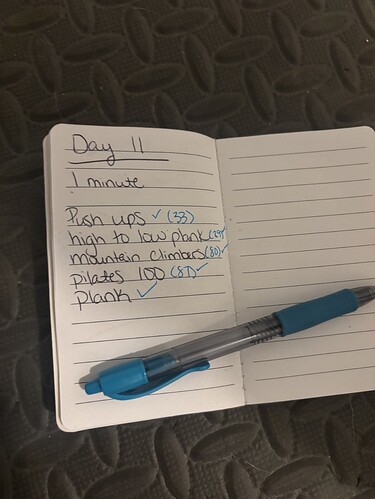 Day 11
1 minute
Push ups ✓ (33)
high to low plank (29) ✓
mountain climbers (80) ✓
pilates 100 (87) ✓
plank ✓